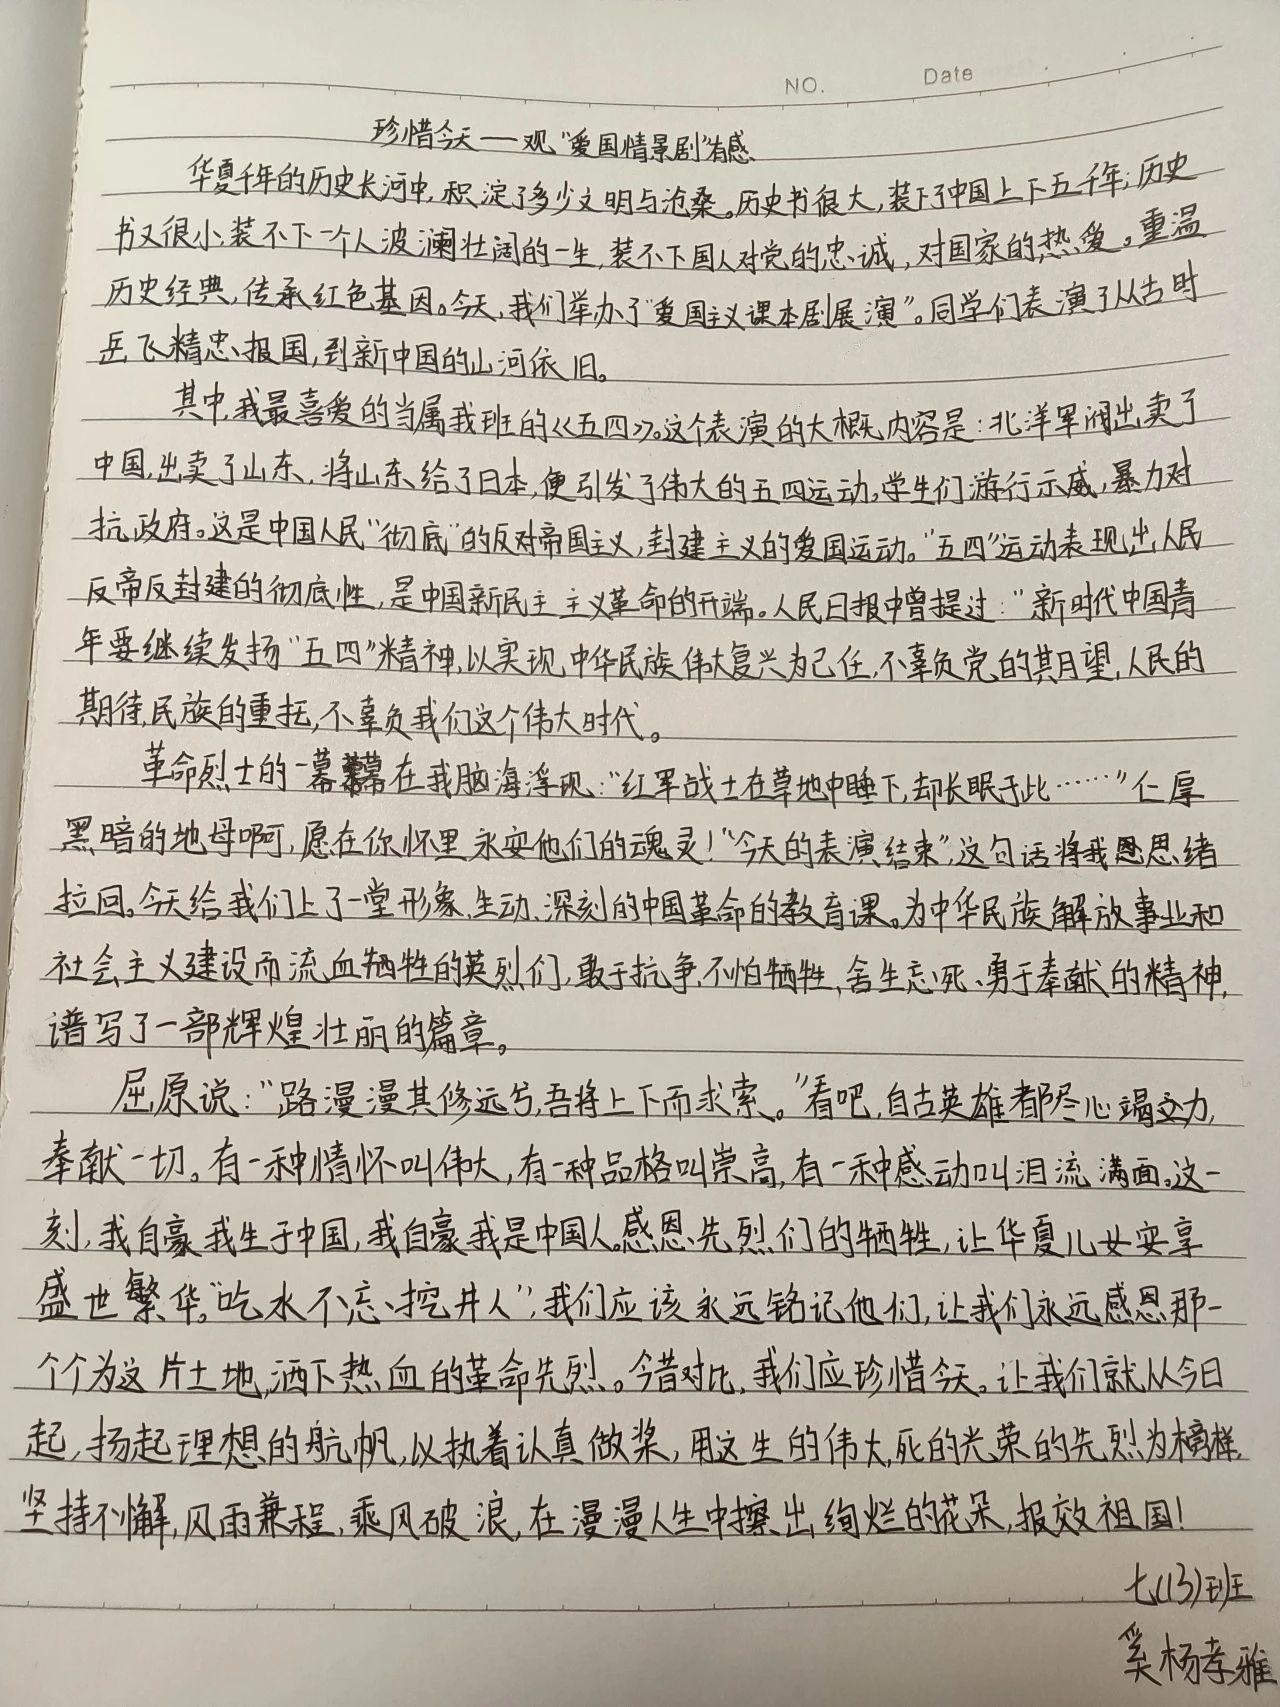 NO. Date
珍惜今天——观"爱国情景剧"有感
华夏千年的历史长河中,积淀了多少文明与沧桑。历史书很大,装下了中国上下五千年;历史
书又很小,装不下一个人波澜壮阔的一生,装不下国人对党的忠诚,对国家的热爱。重温
历史经典,传承红色基因。今天,我们举办了"爱国主义课本剧展演"。同学们表演了从古时
岳飞精忠报国,到新中国的山河依旧。
其中,我最喜爱的当属我班的《五四》。这个表演的大概内容是:北洋军阀出卖了
中国,出卖了山东,将山东给了日本,便引发了伟大的五四运动。学生们游行示威,暴力对
抗政府。这是中国人民"彻底"的反对帝国主义,封建主义的爱国运动。"五四"运动表现出人民
反帝反封建的彻底性,是中国新民主主义革命的开端。人民日报中曾提过:"新时代中国青
年要继续发扬"五四"精神,以实现中华民族伟大复兴为己任,不辜负党的期望,人民的
期待,民族的重托,不辜负我们这个伟大时代。
革命烈士的一幕幕在我脑海浮现:"红军战士在草地中睡下,却长眠于此……"仁厚
黑暗的地母啊,愿在你怀里永安他们的魂灵!"今天的表演结束",这句话将我思绪
拉回。今天给我们上了一堂形象、生动、深刻的中国革命的教育课。为中华民族解放事业和
社会主义建设而流血牺牲的英烈们,敢于抗争、不怕牺牲、舍生忘死、勇于奉献的精神,
谱写了一部辉煌壮丽的篇章。
屈原说:"路漫漫其修远兮,吾将上下而求索。"看吧,自古英雄都尽心竭力,
奉献一切。有一种情怀叫伟大,有一种品格叫崇高,有一种感动叫泪流满面。这一
刻,我自豪我生于中国,我自豪我是中国人。感恩先烈们的牺牲,让华夏儿女安享
盛世繁华。"吃水不忘挖井人",我们应该永远铭记他们,让我们永远感恩那一
个个为这片土地,洒下热血的革命先烈。今昔对比,我们应珍惜今天。让我们就从今日
起,扬起理想的航帆,以执着认真做桨,用这生的伟大,死的光荣的先烈为榜样,
坚持不懈,风雨兼程,乘风破浪,在漫漫人生中擦出绚烂的花朵,报效祖国!
七(13)班
奚杨孝雅